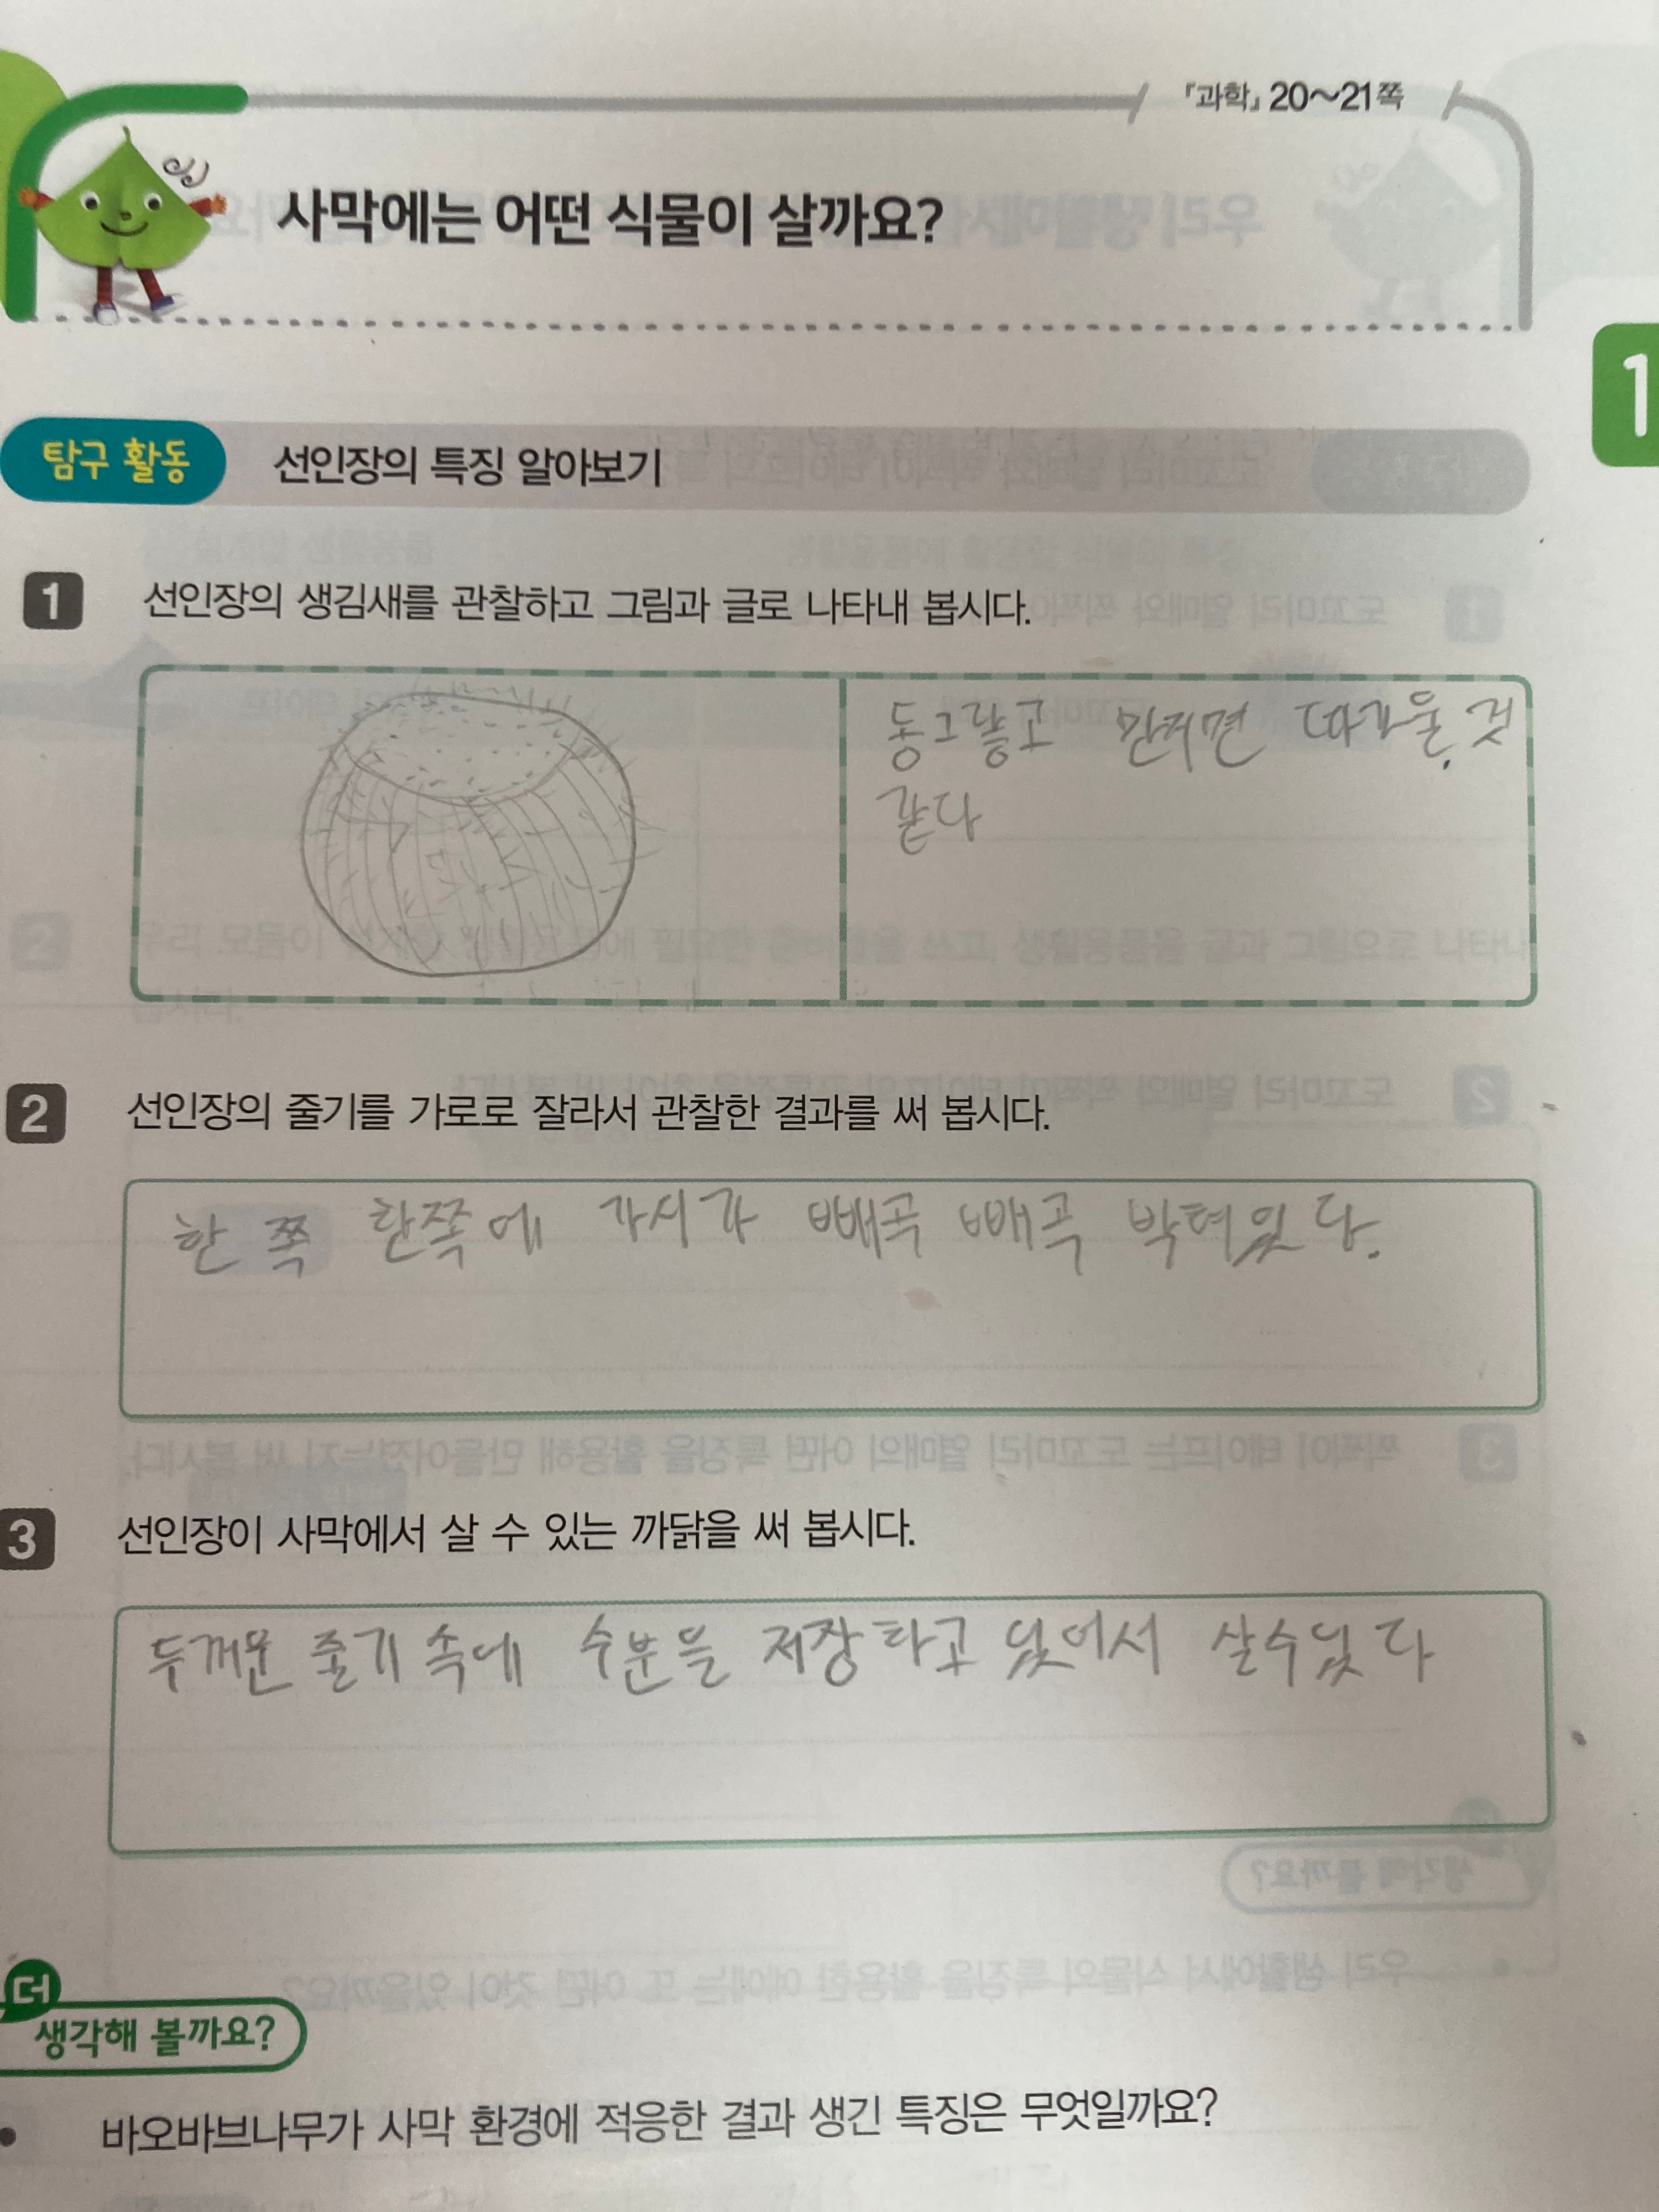 『과학』 20~21쪽
사막에는 어떤 식물이 살까요?
1
탐구 활동 선인장의 특징 알아보기
1 선인장의 생김새를 관찰하고 그림과 글로 나타내 봅시다.
동그랗고 만지면 따가울 것
같다
2 선인장의 줄기를 가로로 잘라서 관찰한 결과를 써 봅시다.
한 쪽 한쪽에 가시가 빼곡 빼곡 박혀있다.
3 선인장이 사막에서 살 수 있는 까닭을 써 봅시다.
두꺼운 줄기 속에 수분을 저장하고 있어서 살수있다
더
생각해 볼까요?
• 바오바브나무가 사막 환경에 적응한 결과 생긴 특징은 무엇일까요?